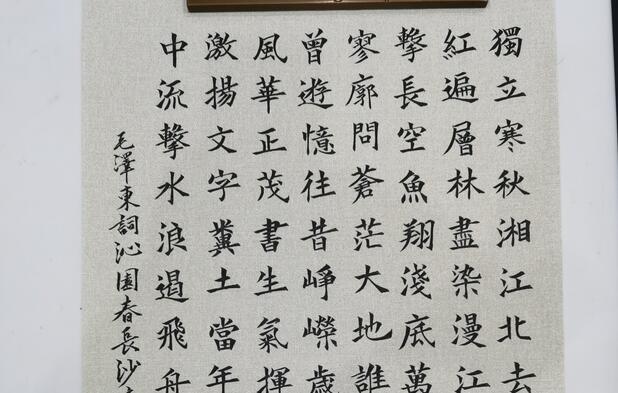 獨立寒秋湘江北去
紅遍層林盡染漫江
擊長空魚翔淺底萬
寥廓問蒼茫大地誰
曾遊憶往昔崢嶸歲
風華正茂書生氣揮
激揚文字糞土當年
中流擊水浪遏飛舟
毛澤東詞沁園春長沙